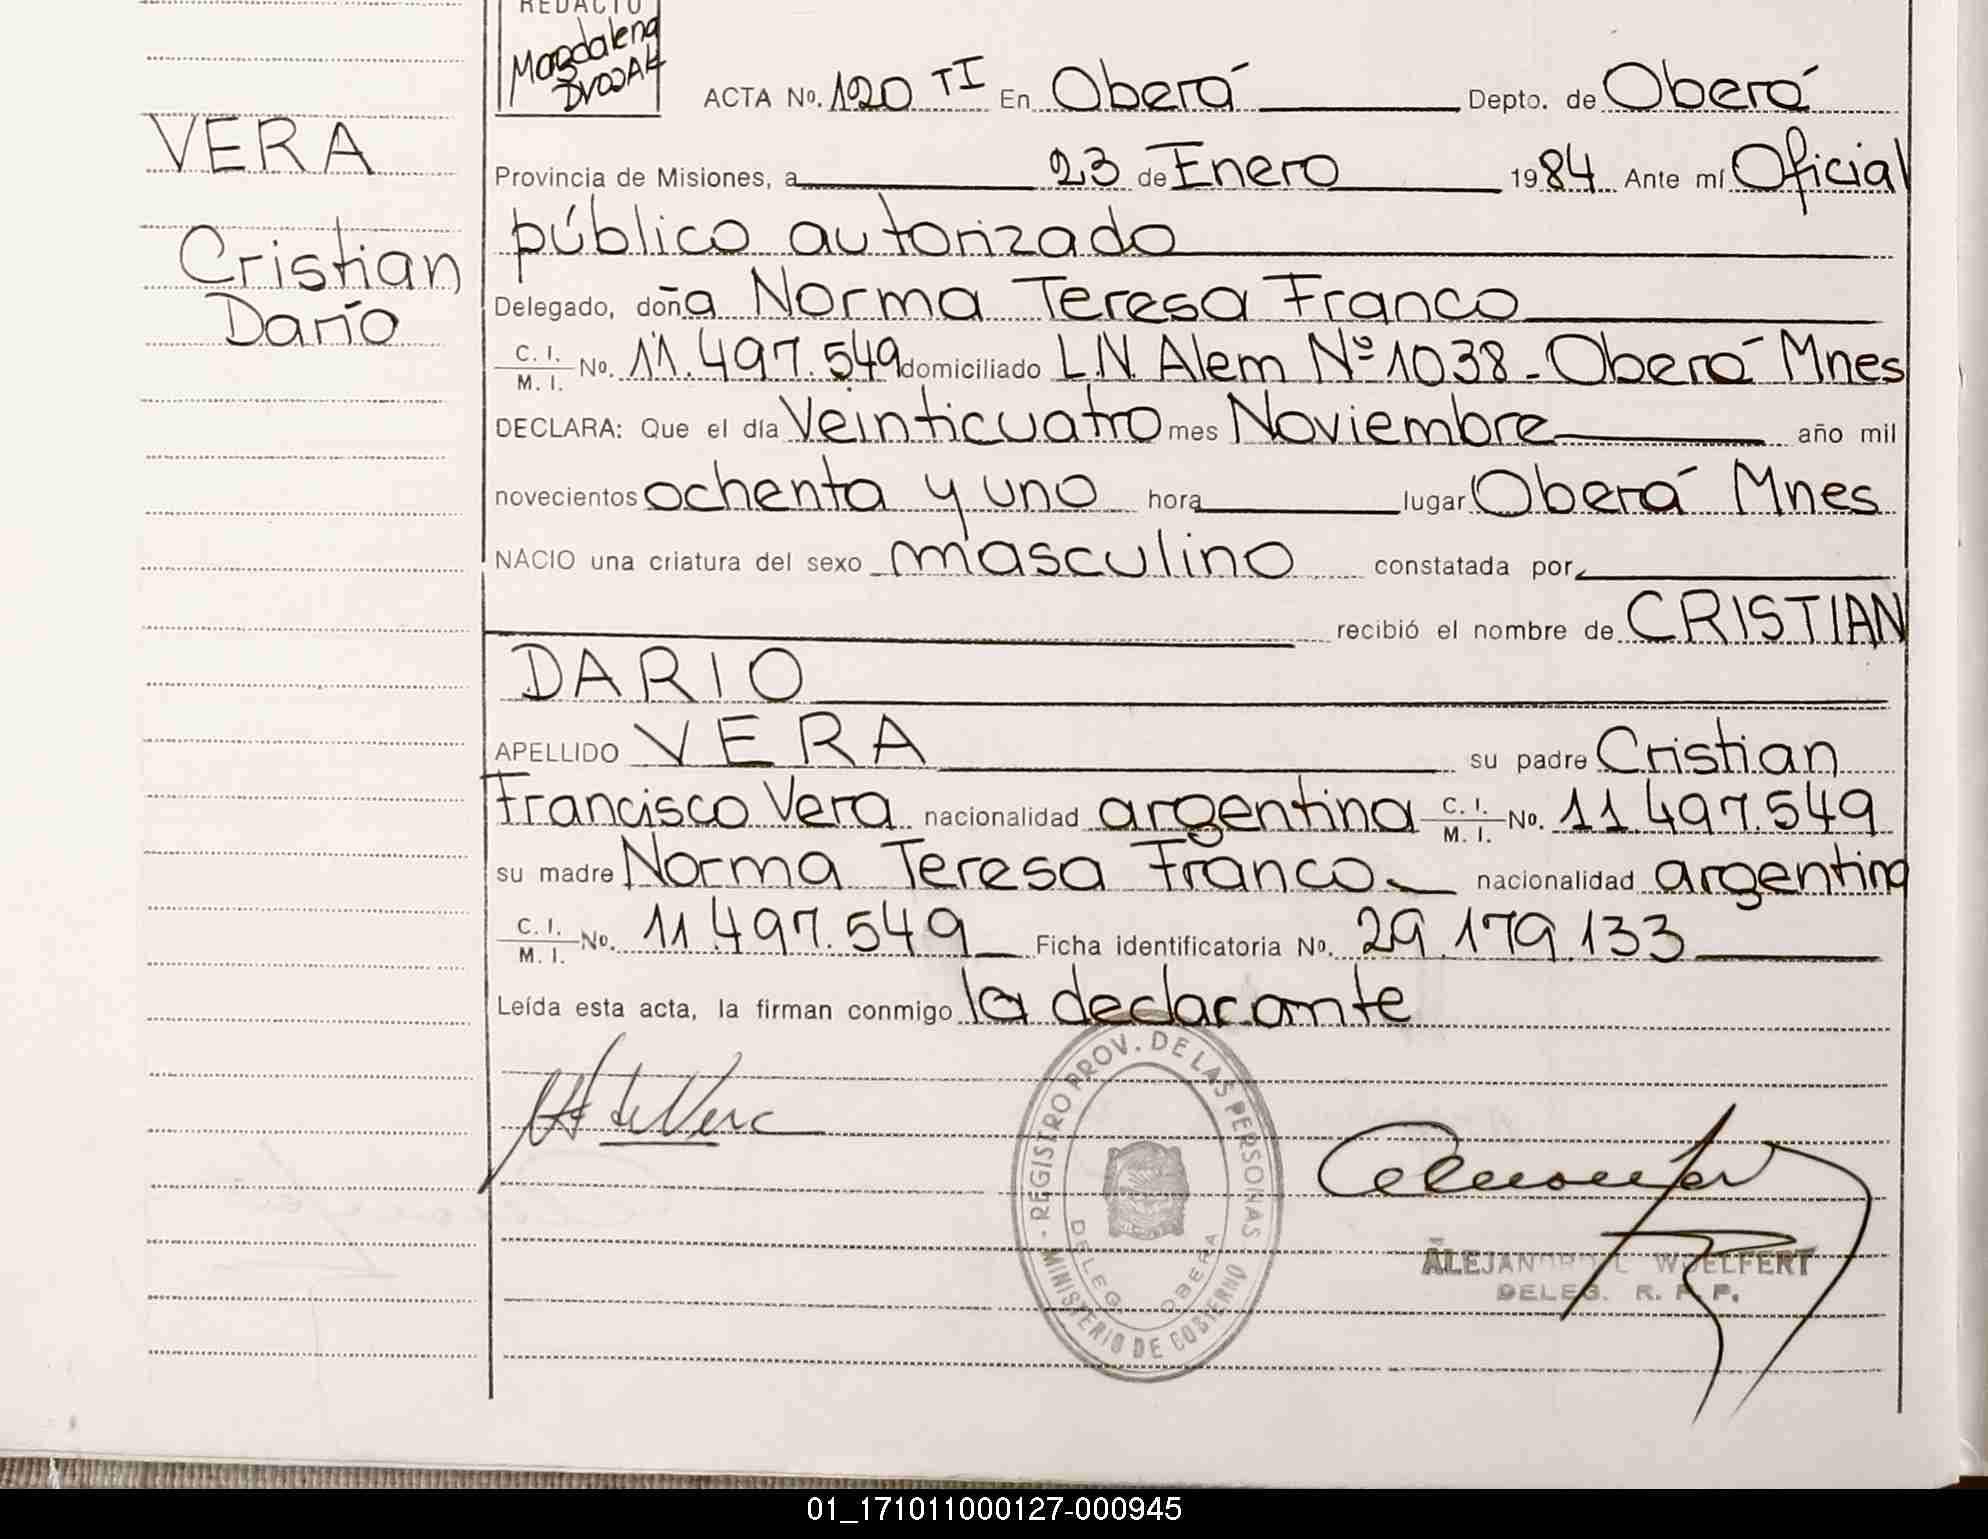 REDACTO
Magdalena
ACTA No. 120 TI En Oberá Depto. de Oberá
VERA
Provincia de Misiones, a 23 de Enero 1984 Ante mí Oficial
público autorizado
Cristian
Darío
Delegado, doña Norma Teresa Franco
C. I.
M. I. No. 11.497.549 domiciliado L.N. Alem Nº 1038 - Oberá Mnes
DECLARA: Que el día Veinticuatro mes Noviembre año mil
novecientos ochenta y uno hora lugar Oberá Mnes
NACIO una criatura del sexo masculino constatada por
recibió el nombre de CRISTIAN
DARIO
APELLIDO VERA su padre Cristian
Francisco Vera nacionalidad argentina C. I. M. I. No. 11.497.549
su madre Norma Teresa Franco nacionalidad argentina
C. I.
M. I. No. 11.497.549 Ficha identificatoria No. 29.179.133
Leída esta acta, la firman conmigo la declarante
REGISTRO PROV. DE LAS PERSONAS
MINISTERIO DE GOBIERNO
DELEG. OBERA
WOELFERT
DELEG. R. P. P.
01_171011000127-000945